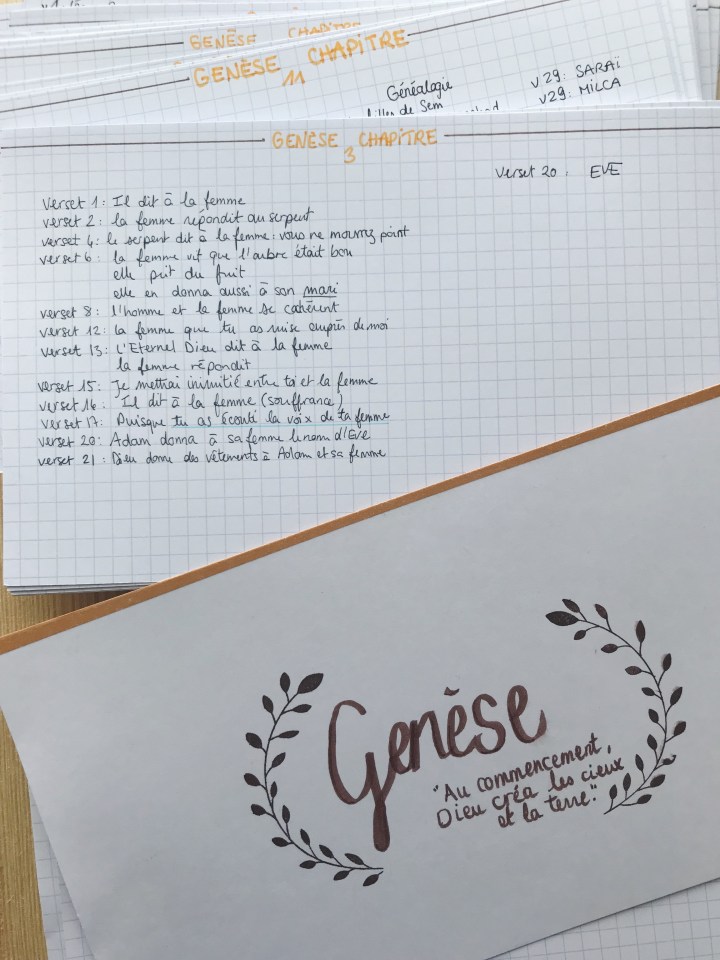 GENÈSE CHAPITRE
GENÈSE CHAPITRE
11
Généalogie
de Sem
v 29: SARAÏ
v 29: MILCA
GENÈSE CHAPITRE
3
Verset 20: EVE
Verset 1: Il dit à la femme
verset 2: la femme répondit au serpent
verset 4: le serpent dit à la femme: vous ne mourrez point
verset 6: la femme vit que l'arbre était bon
elle prit du fruit
elle en donna aussi à son mari
verset 8: l'homme et la femme se cachèrent
verset 12: la femme que tu as mise auprès de moi
verset 13: L'Eternel Dieu dit à la femme
la femme répondit
verset 15: Je mettrai inimitié entre toi et la femme
verset 16: Il dit à la femme (souffrance)
verset 17: Puisque tu as écouté la voix de ta femme
verset 20: Adam donna à sa femme le nom d'Eve
verset 21: Dieu donne des vêtements à Adam et sa femme
Genèse
"Au commencement,
Dieu créa les cieux
et la terre."